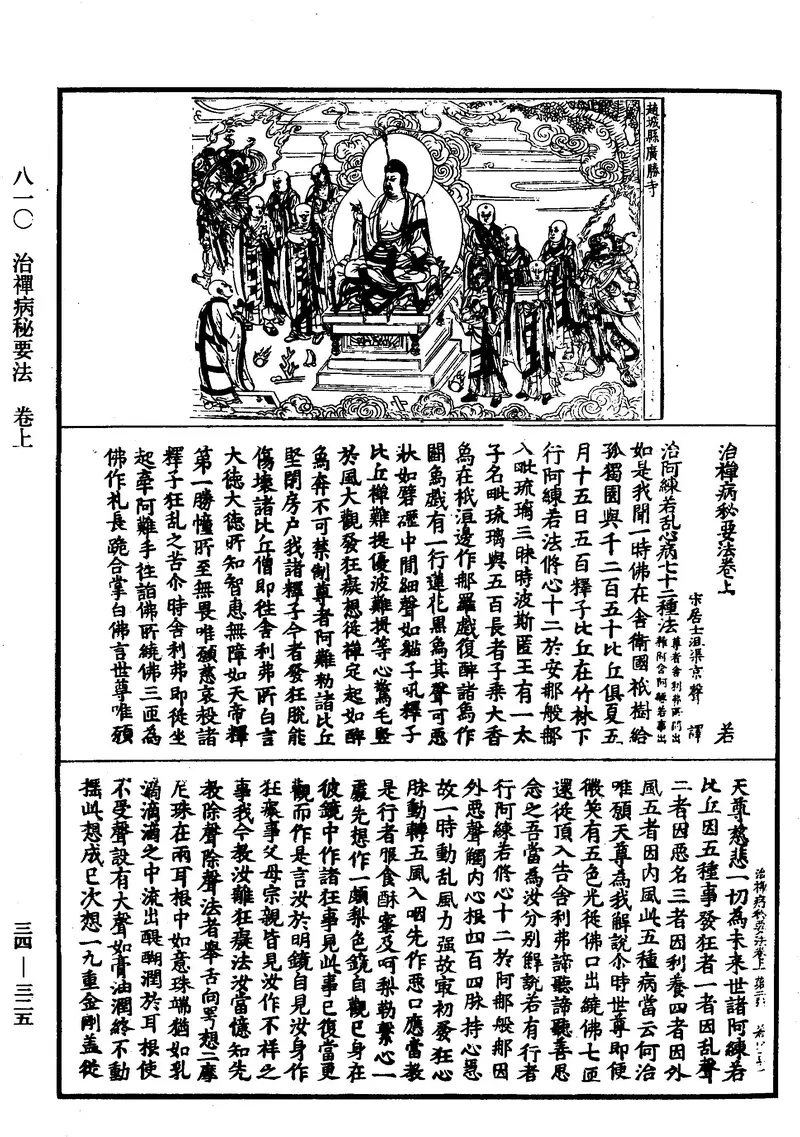 趙城縣廣勝寺
治禪病秘要法卷上
若
宋居士沮渠京聲 譯
治阿練若乱心病七十二種法
尊者舍利弗所問出
雜阿含阿練若事中
如是我聞一時佛在舍衛國祇樹給
孤獨園與千二百五十比丘俱夏五
月十五日五百釋子比丘在竹林下
行阿練若法修心十二於安那般那
入毗琉璃三昧時波斯匿王有一太
子名毗琉璃與五百長者子乘大香
象在祇洹邊作那羅戲復醉諸象作
鬬象戲有一行蓮花黑象其聲可惡
狀如礔礰中間細聲如貓子吼釋子
比丘禪難提優波難提等心驚毛竪
於風大觀發狂癡想從禪定起如醉
象奔不可禁制尊者阿難勒諸比丘
堅閉房戶我諸釋子今者發狂脫能
傷壞諸比丘僧即往舍利弗所白言
大德大德所知智慧無障如天帝釋
第一勝幢所至無畏唯願慈哀救諸
釋子狂乱之苦尒時舍利弗即從坐
起牽阿難手往詣佛所繞佛三匝為
佛作礼長跪合掌白佛言世尊唯願
治禪病秘要法卷上
天尊慈悲一切為未來世諸阿練若
比丘因五種事發狂者一者因乱聲
二者因惡名三者因利養四者因外
風五者因内風此五種病當云何治
唯願天尊為我解說尒時世尊即便
微笑有五色光從佛口出繞佛七匝
還從頂入告舍利弗諦聽諦聽善思
念之吾當為汝分別解說若有行者
行阿練若修心十二於阿那般那因
外惡聲觸内心根四百四脉持心急
故一時動乱風力强故最初發狂心
脉動轉五風入咽先作惡口應當教
是行者服食酥蜜及呵梨勒繫心一
處先想作一頗梨色鏡自觀己身在
彼鏡中作諸狂事見此事已復當更
觀而作是言汝於明鏡自見汝身作
狂癡事父母宗親皆見汝作不祥之
事我今教汝離狂癡法汝當憶知先
教除聲除聲法者舉舌向㗁想二摩
尼珠在兩耳根中如意珠端猶如乳
滴滴滴之中流出醍醐潤於耳根使
不受聲設有大聲如膏油潤終不動
搖此想成已次想一九重金剛盖從
八一〇　治禪病秘要法　卷上
三四—三二五